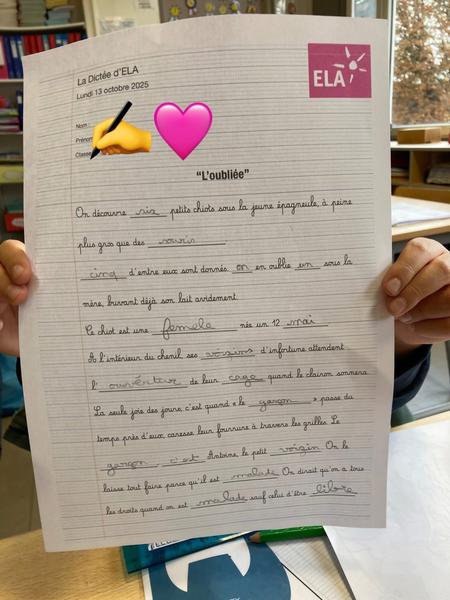 La Dictée d'ELA
Lundi 13 octobre 2025
ELA
Nom :
Prénom
Classe
"L'oubliée"
On découvre six petits chiots sous la jeune épagneule, à peine
plus gros que des souris.
cinq d'entre eux sont donnés. on en oublie un sous la
mère, buvant déjà son lait avidement.
Ce chiot est une femele née un 12 mai
A l'intérieur du chenil, ses voisins d'infortune attendent
l'ouvertur de leur cage quand le clairon sonnera.
La seule joie des jours, c'est quand « le garçon » passe du
temps près d'eux, caresse leur fourrure à travers les grilles. Le
garçon, c'est Antoine, le petit voizin On le
laisse tout faire parce qu'il est malade On dirait qu'on a tous
les droits quand on est malade sauf celui d'être libre